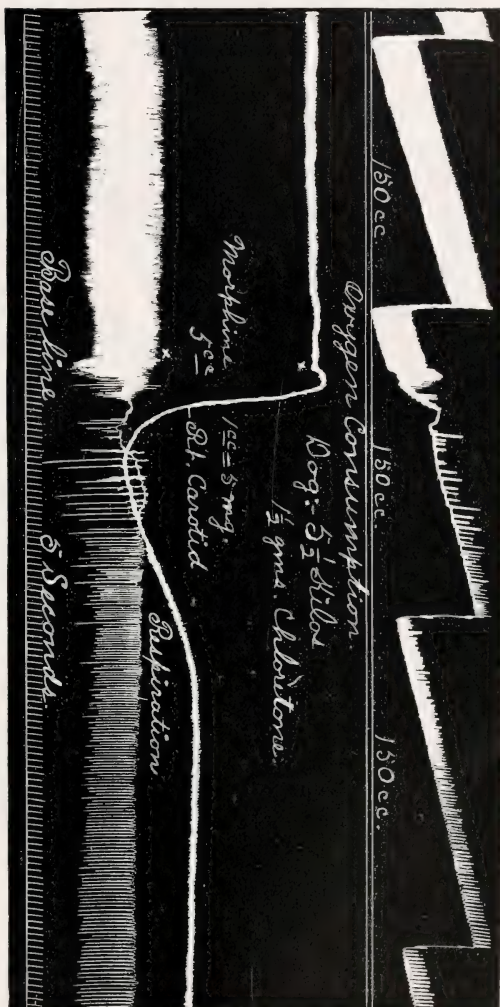 150 cc. 150 cc. 150 cc.
Oxygen Consumption
Dog: 5½ Kilos
1½ gms. Chloretone.
Morphine 1cc=5 mg.
5cc Rt. Carotid
Respiration
Base line 5 Seconds